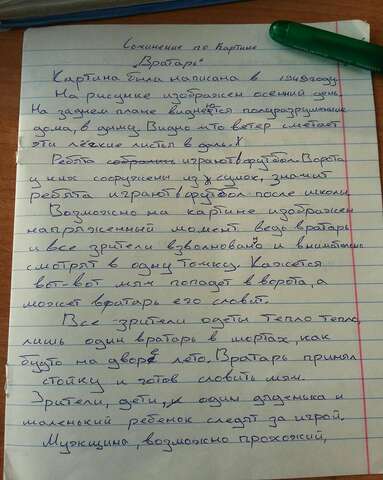 Сочинение по Картине
„Вратарь"
Картина была написана в 1949 году.
На рисунке изображён осенний день.
На заднем плане виднеются полуразрушенные
дома, в дымку. Видно что ветер сметает
эти лёгкие листья в даль.
Ребята собрались играют в футбол. Ворота
у них сооружены из сумок, значит
ребята играют в футбол после школы.
Возможно на картине изображён
напряжённый момент ведь вратарь
и все зрители взволнованно и внимательно
смотрят в одну точку. Кажется
вот-вот мяч попадет в ворота, а
может вратарь его словит.
Все зрители одеты тепло тепло,
лишь один вратарь в шортах, как
будто на дворе лето. Вратарь принял
стойку и готов словить мяч.
Зрители, дети, и один дяденька и
маленький ребёнок следят за игрой.
Мужщина, возможно прохожий,